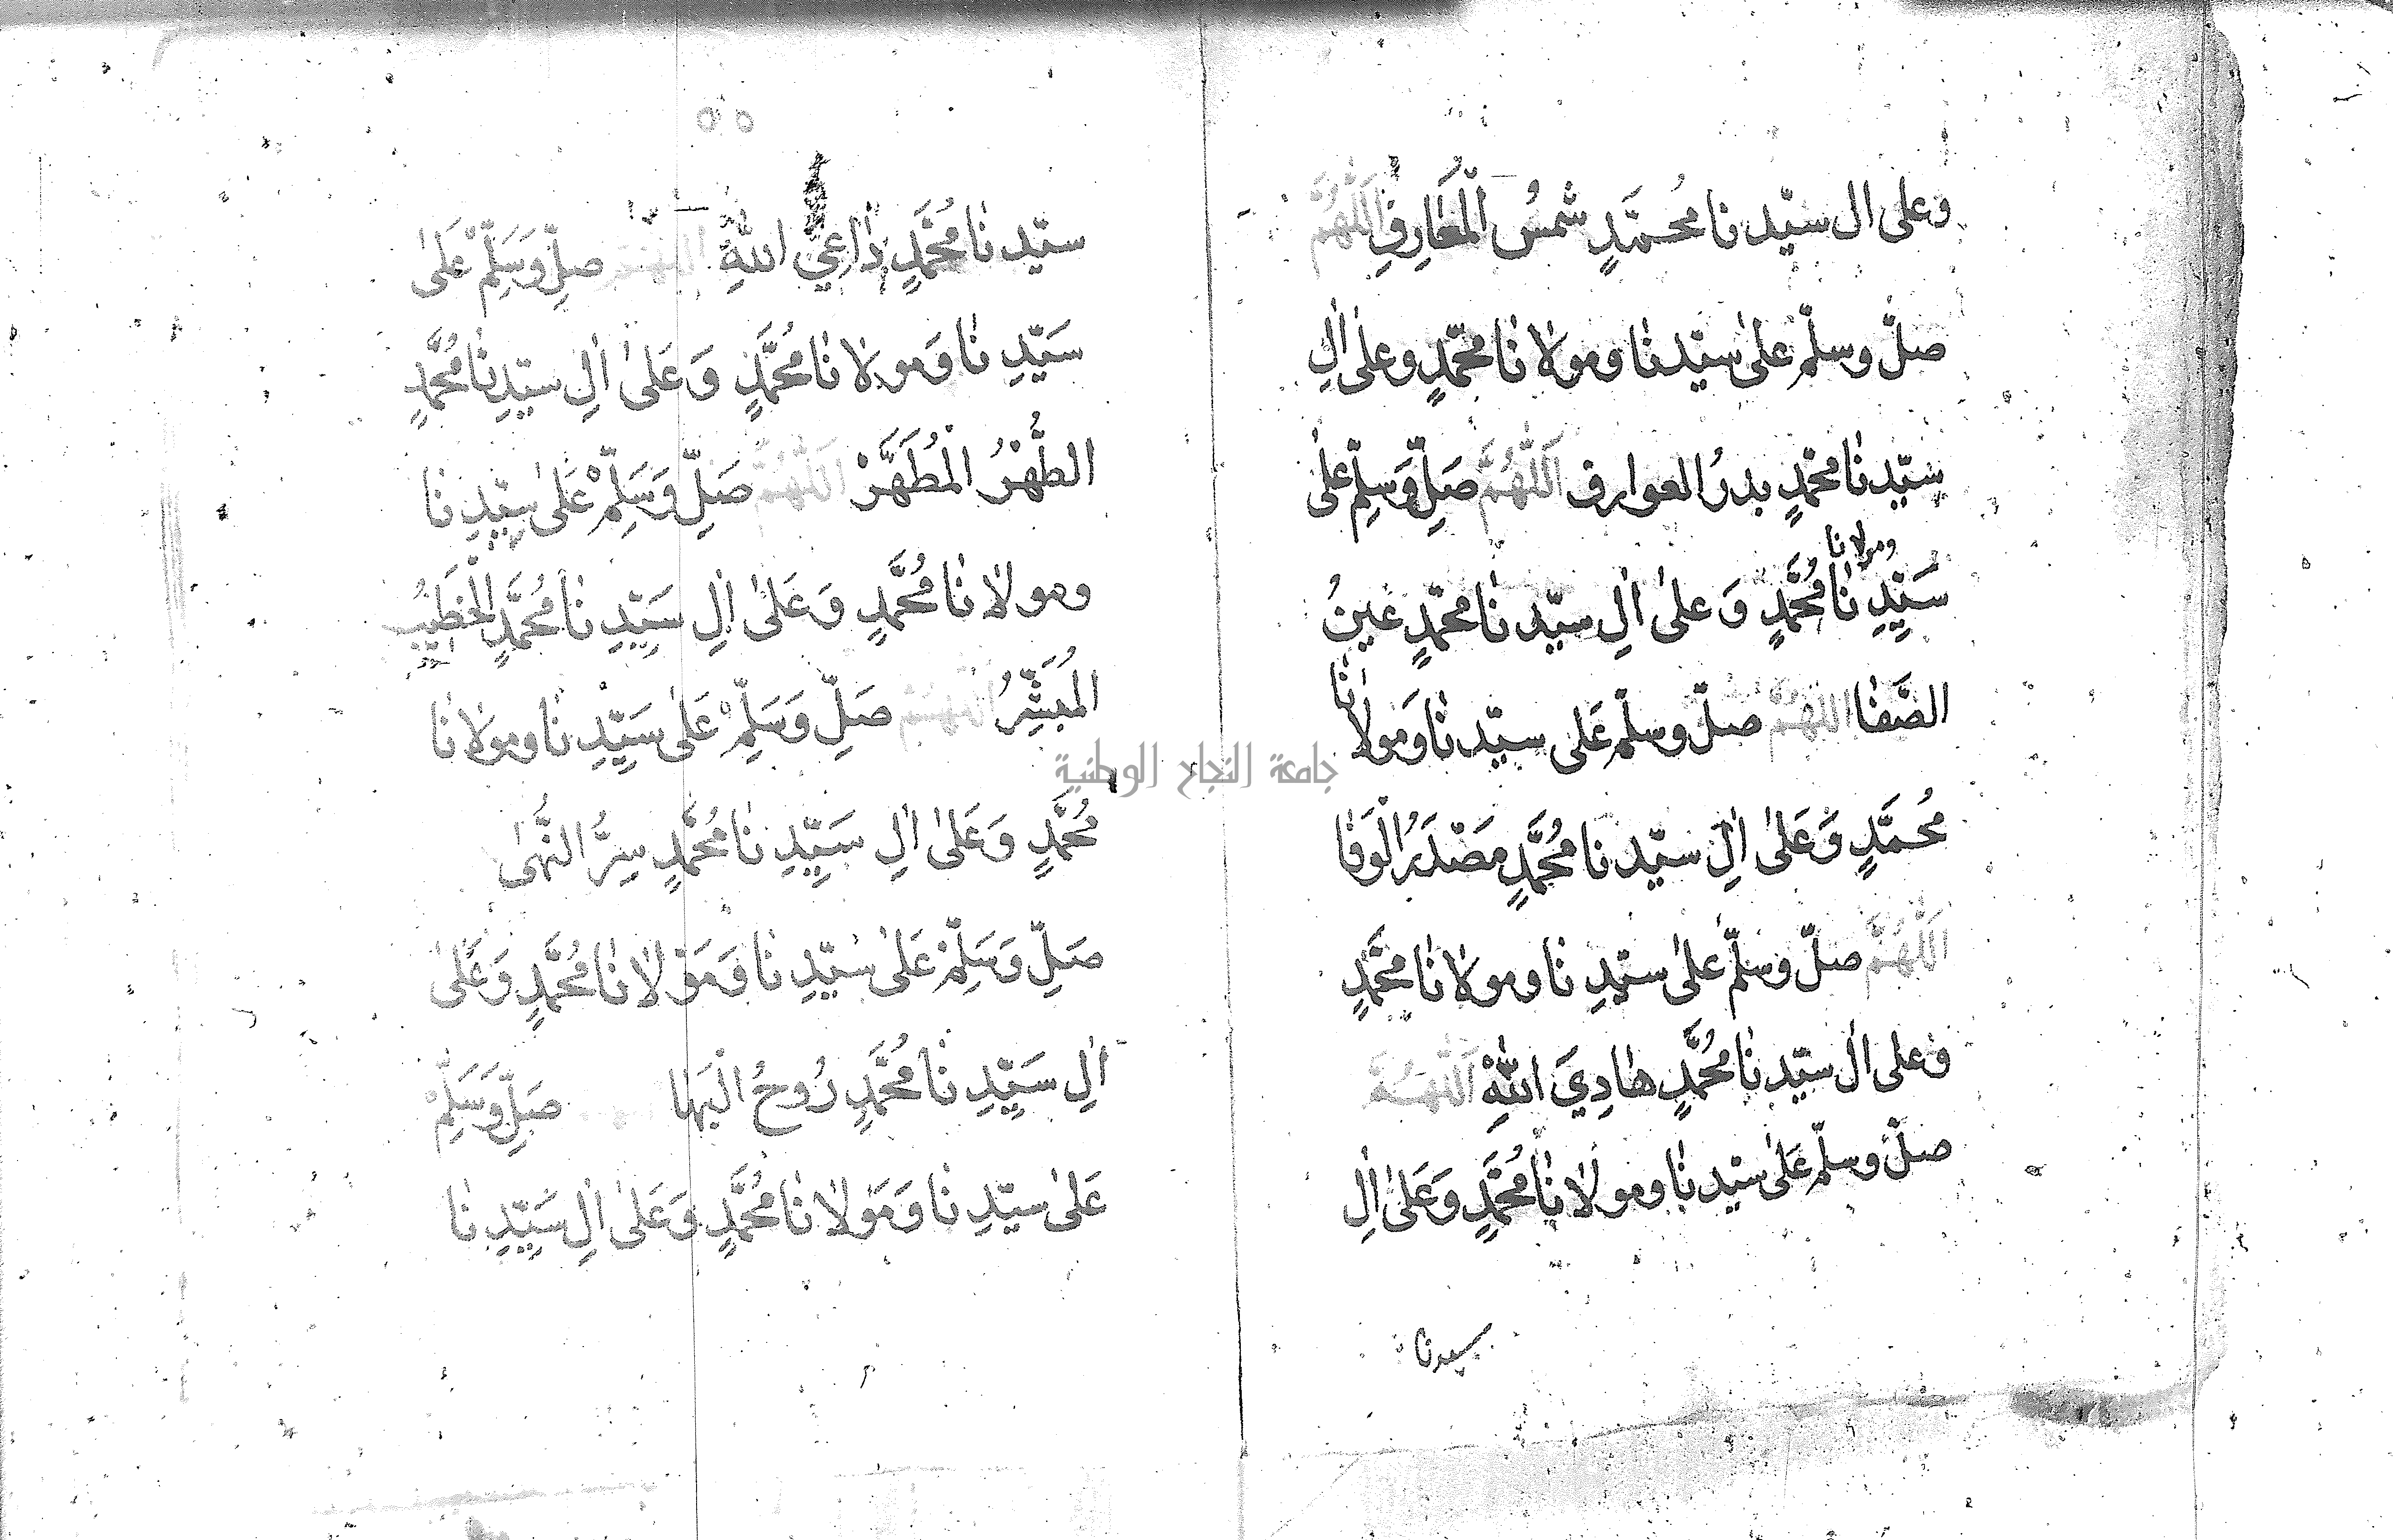 وعلى ال سيّدنا مُحمّدٍ شمسُ الْمَعَارِفِ اَللّٰهُمَّ
صلّ وسلّم على سيّدنا ومولانا محمّدٍ وعلى اٰلِ
سيّدنا محمّدٍ بدرُ العوارف اَللّٰهُمَّ صَلِّ وَسَلِّم على
ومولانا
سَيِّدِنَا مُحَمَّدٍ وَعلى اٰلِ سيّدنا محمّدٍ عينُ
الصَّفَا اللّٰهُمَّ صلّ وسلّم عَلى سيّدنا وَمولانا
مُحمَّدٍ وَعَلىٰ اٰلِ سيّدنا مُحَمَّدٍ مَصْدَرُ الْوَفَا
اَللّٰهُمَّ صلّ وسلّم على سيّدِنا ومولانا محمَّدٍ
وعلى اٰل سيّدنا مُحَمَّدٍ هَادِيَ اللّٰهِ اَللّٰهُمَّ
صلّ وسلّم عَلىٰ سيّدنا ومولانا مُحَمَّدٍ وَعَلىٰ اٰلِ
سيدنا
٥٥
سيّدنا مُحَمَّدٍ دَاعِيَ اللّٰهِ اللّٰهُمَّ صلِّ وَسَلِّمْ عَلىٰ
سَيِّدِنَا وَمولانا مُحَمَّدٍ وَعَلىٰ اٰلِ سيّدِنا مُحَمَّدٍ
الطُّهْرُ الْمُطَهَّرْ اَللّٰهُمَّ صَلِّ وَسَلِّمْ عَلىٰ سيّدِنا
ومولانا مُحَمَّدٍ وَعَلىٰ اٰلِ سَيِّدِنَا مُحَمَّدٍ الْخَطِيْبُ
الْمُبَشِّرُ اللّٰهُمَّ صَلِّ وَسَلِّمْ عَلىٰ سَيِّدِنا ومولانا
مُحَمَّدٍ وَعَلىٰ اٰلِ سَيِّدِنَا مُحَمَّدٍ سِرُّ النُّهىٰ
صَلِّ وَسَلِّمْ عَلىٰ سيّدِنا وَمَوْلانا مُحَمَّدٍ وَعَلىٰ
اٰلِ سَيِّدِنَا مُحَمَّدٍ رُوحُ الْبَهَا صَلِّ وَسَلِّمْ
عَلىٰ سيّدِنا وَمَوْلانا مُحَمَّدٍ وَعَلىٰ اٰلِ سَيِّدِنا
جامعة النجاح الوطنية